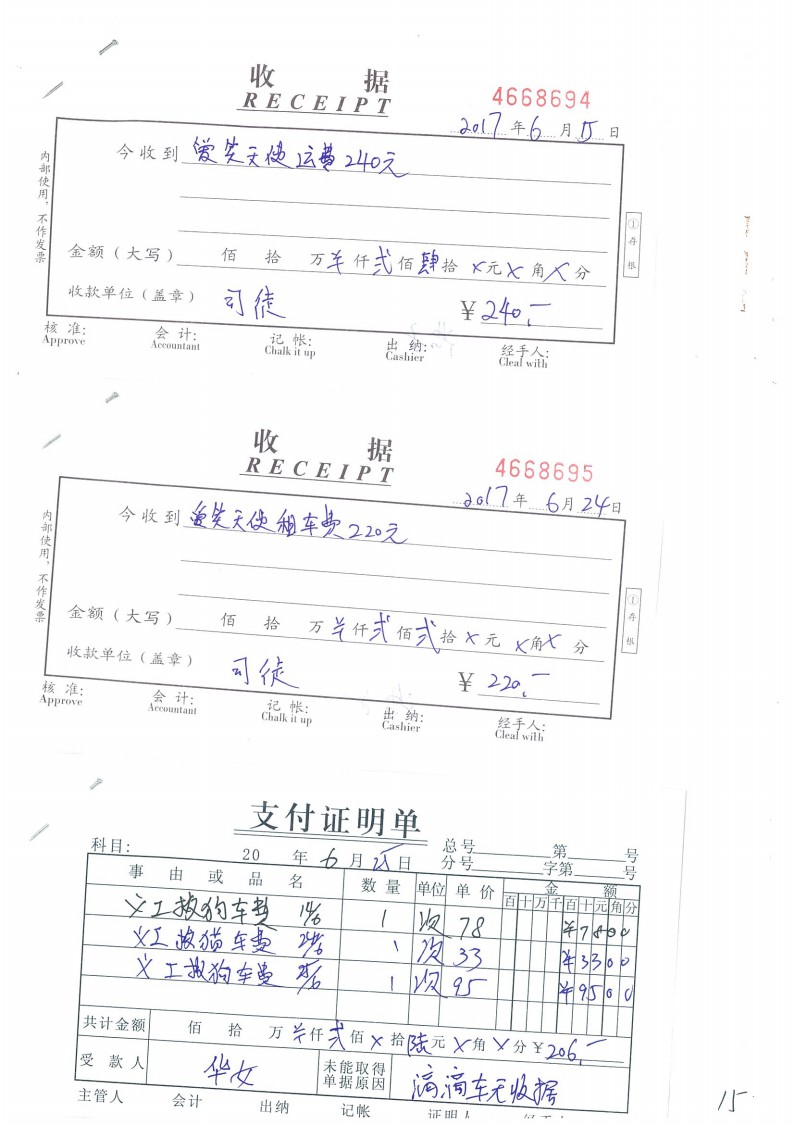 收 据
RECEIPT
4668694
2017 年 6 月 15 日
今收到 爱笑天使运费240元
内部使用，不作发票
①存根
金额（大写） 佰 拾 万 ¥ 仟 贰 佰 肆 拾 x 元 x 角 x 分
收款单位（盖章） 司徒 ¥ 240.-
核 准: 会 计: 记 帐: 出 纳: 经手人:
Approve Accountant Chalk it up Cashier Cleal with
收 据
RECEIPT
4668695
2017 年 6 月 24 日
今收到 爱笑天使租车费220元
内部使用，不作发票
①存根
金额（大写） 佰 拾 万 ¥ 仟 贰 佰 贰 拾 x 元 x 角 x 分
收款单位（盖章） 司徒 ¥ 220.-
核 准: 会 计: 记 帐: 出 纳: 经手人:
Approve Accountant Chalk it up Cashier Cleal with
支付证明单
科目: 总号 第 号
20 年 6 月 25 日 分号 字第 号
事 由 或 品 名 数 量 单位 单 价 金 额
百 十 万 千 百 十 元 角 分
义工救狗车费 14/6 1 次 78 ¥7800
义工救猫车费 24/6 1 次 33 ¥3300
义工救狗车费 25/6 1 次 95 ¥9500
共计金额 佰 拾 万 ¥ 仟 贰 佰 x 拾 陆 元 x 角 x 分 ¥ 206.-
受 款 人 华女 未能取得单据原因 滴滴车无收据
主管人 会计 出纳 记帐 证明人
15